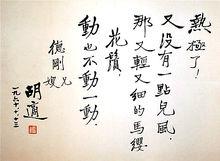 熱極了！
又没有一點兒風，
那又輕又細的馬纓
花鬚，
動也不動一動。
德剛兄
嫂
胡適
一九六十、十、三